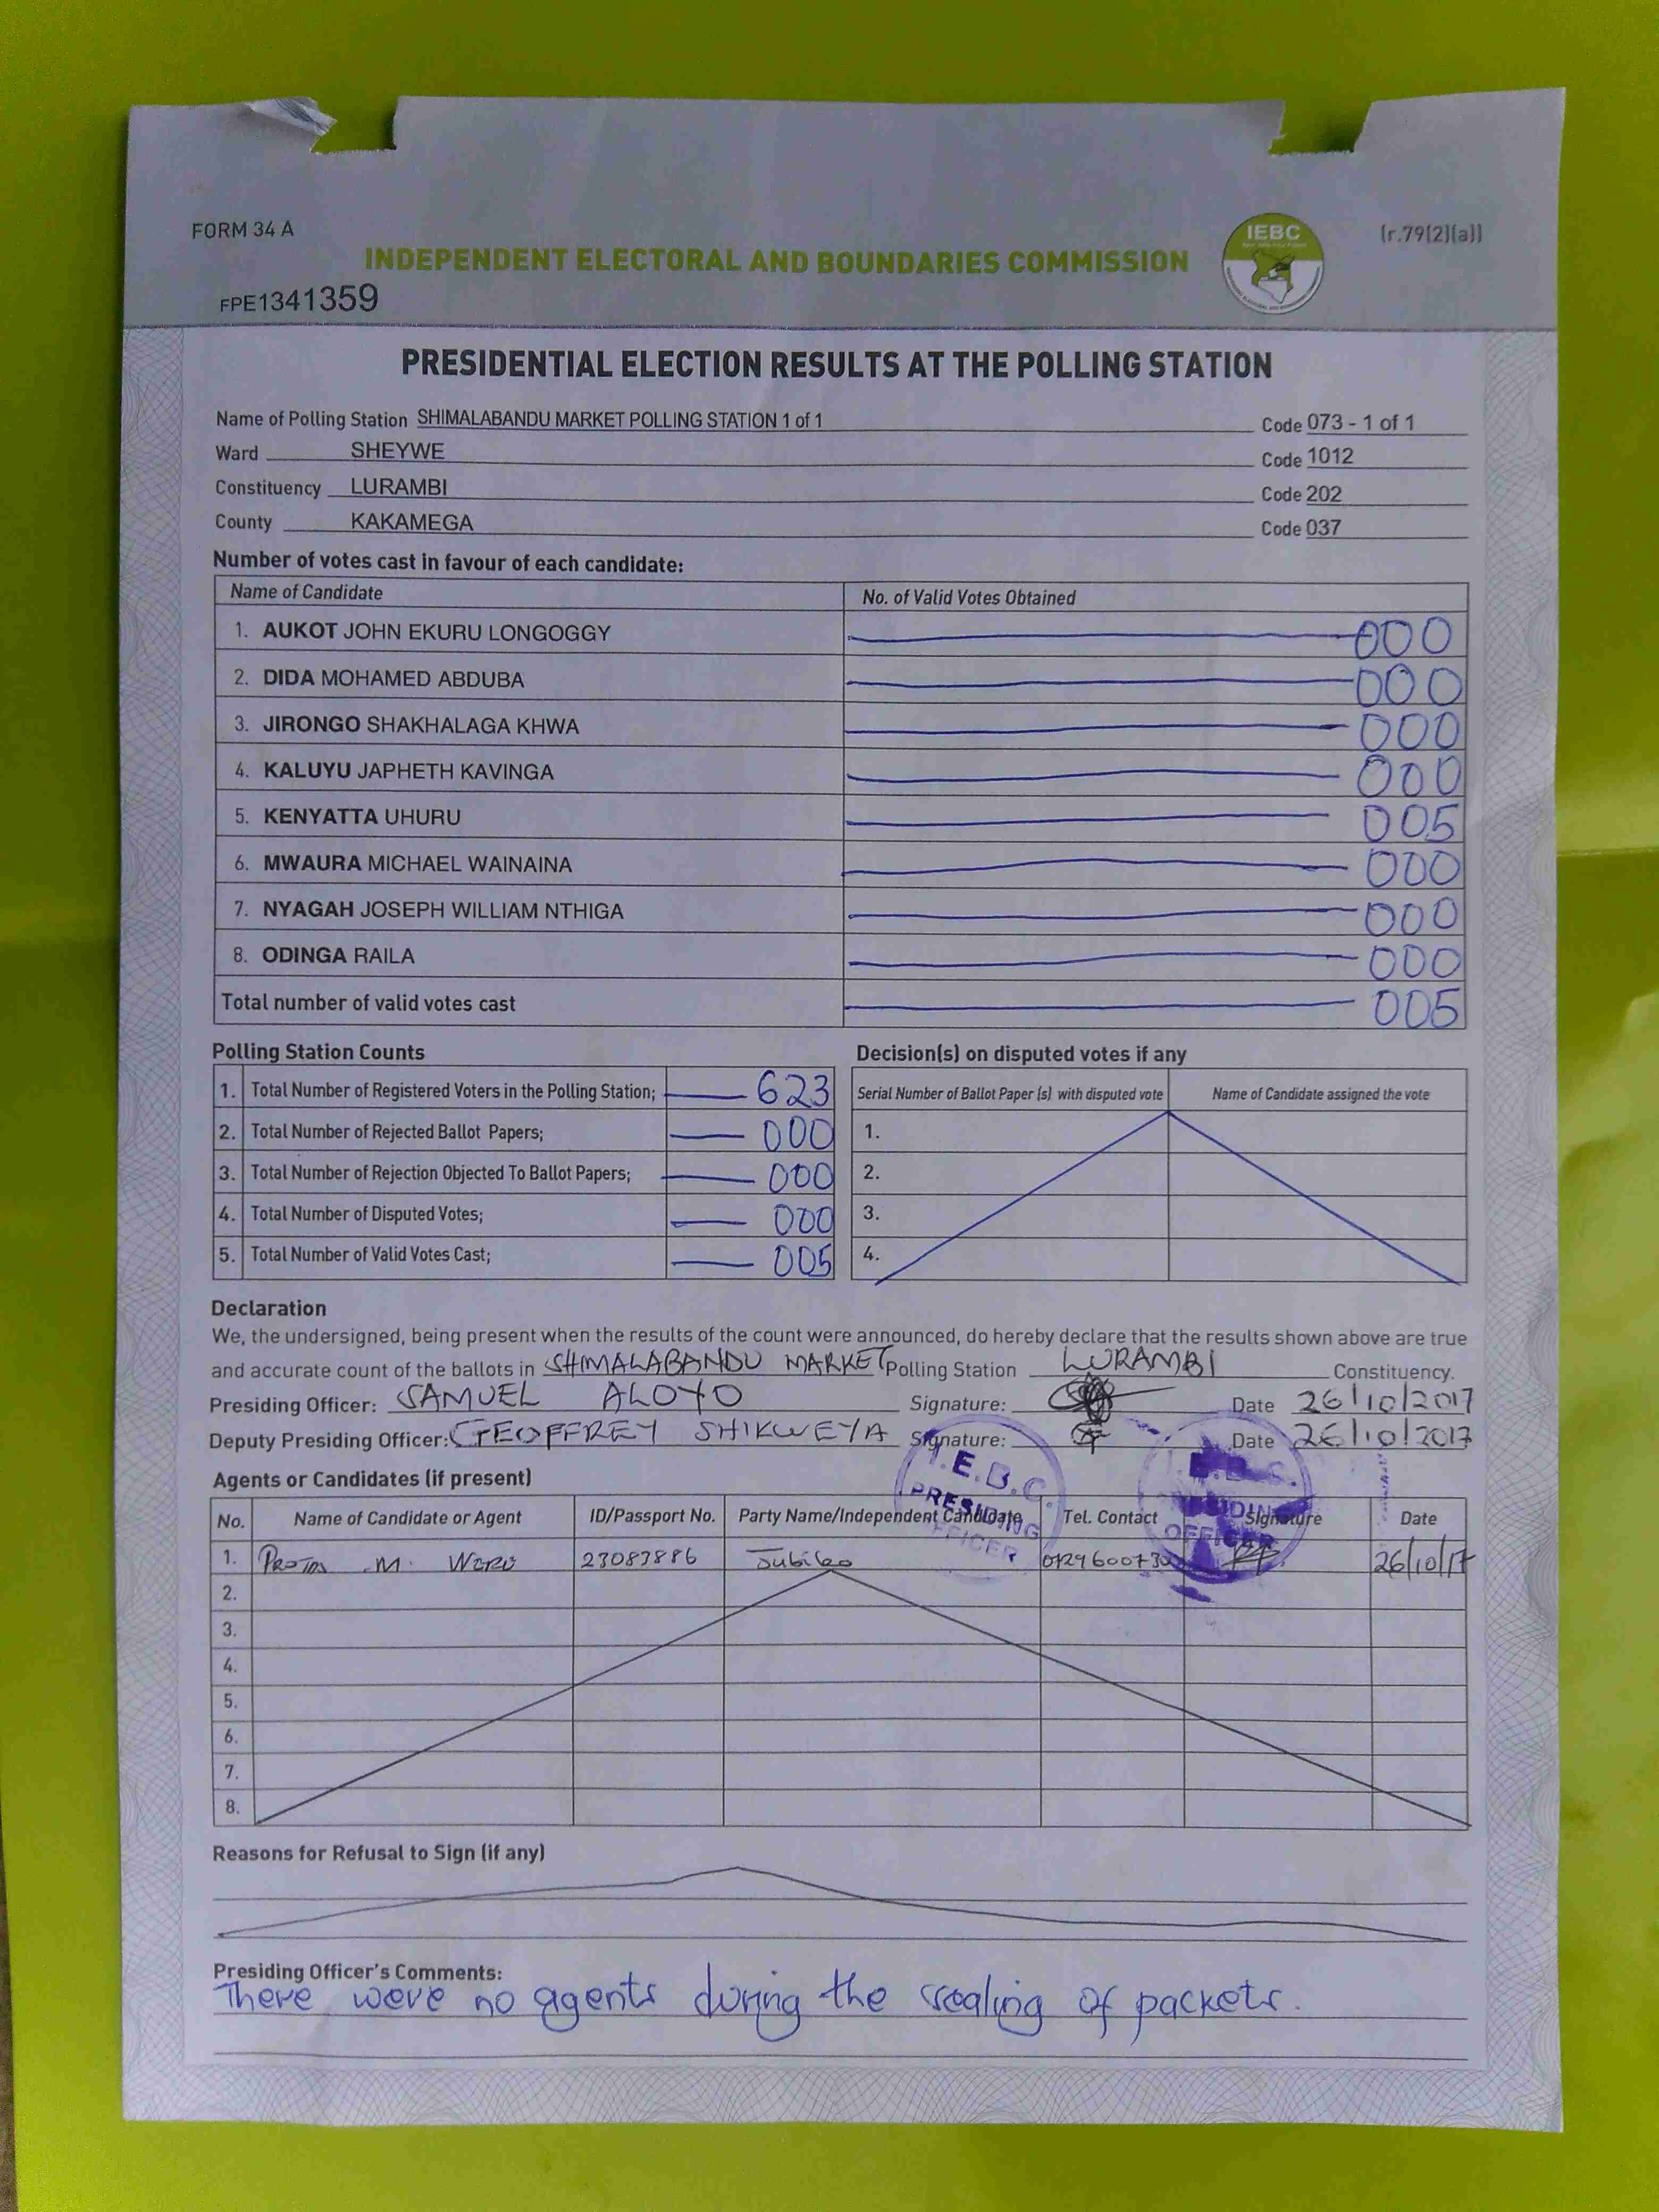 FORM 34 A
IEBC
(r.79(2)(a))
INDEPENDENT ELECTORAL AND BOUNDARIES COMMISSION
FPE1341359
PRESIDENTIAL ELECTION RESULTS AT THE POLLING STATION
Name of Polling Station SHIMALABANDU MARKET POLLING STATION 1 of 1 Code 073 - 1 of 1
Ward SHEYWE Code 1012
Constituency LURAMBI Code 202
County KAKAMEGA Code 037
Number of votes cast in favour of each candidate:
Name of Candidate No. of Valid Votes Obtained
1. AUKOT JOHN EKURU LONGOGGY 000
2. DIDA MOHAMED ABDUBA 000
3. JIRONGO SHAKHALAGA KHWA 000
4. KALUYU JAPHETH KAVINGA 000
5. KENYATTA UHURU 005
6. MWAURA MICHAEL WAINAINA 000
7. NYAGAH JOSEPH WILLIAM NTHIGA 000
8. ODINGA RAILA 000
Total number of valid votes cast 005
Polling Station Counts
1. Total Number of Registered Voters in the Polling Station; 623
2. Total Number of Rejected Ballot Papers; 000
3. Total Number of Rejection Objected To Ballot Papers; 000
4. Total Number of Disputed Votes; 000
5. Total Number of Valid Votes Cast; 005
Decision(s) on disputed votes if any
Serial Number of Ballot Paper (s) with disputed vote Name of Candidate assigned the vote
1.
2.
3.
4.
Declaration
We, the undersigned, being present when the results of the count were announced, do hereby declare that the results shown above are true
and accurate count of the ballots in SHIMALABANDU MARKET Polling Station LURAMBI Constituency.
Presiding Officer: SAMUEL ALOYO Signature: Date 26/10/2017
Deputy Presiding Officer: GEOFFREY SHIKWEYA Signature: Date 26/10/2017
I.E.B.C.
PRESIDING
OFFICER
Agents or Candidates (if present)
No. Name of Candidate or Agent ID/Passport No. Party Name/Independent Candidate Tel. Contact Signature Date
1. M. 23083886 Jubilee 26/10/17
2.
3.
4.
5.
6.
7.
8.
Reasons for Refusal to Sign (if any)
Presiding Officer's Comments:
There were no agents during the sealing of packets.